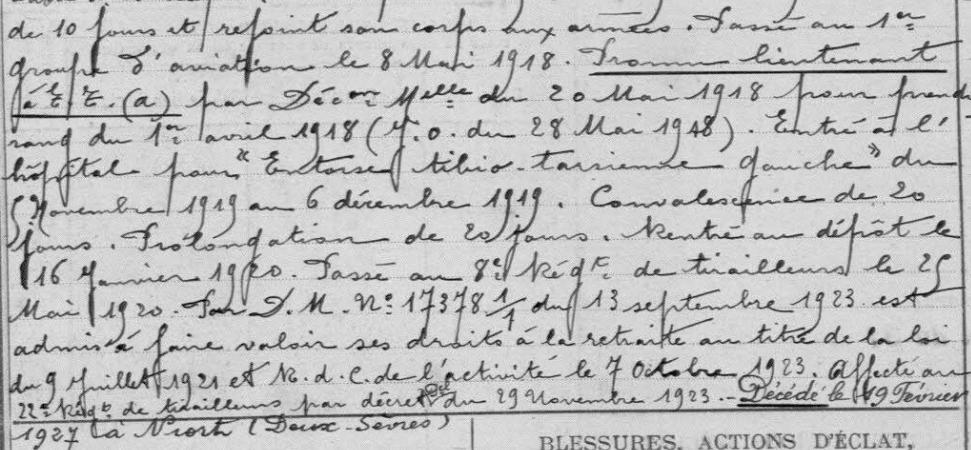 de 10 jours et rejoint son corps aux armées. Passé au 1er
groupe d'aviation le 8 Mai 1918. Promu lieutenant
à T.T. (a) par Décon Melle du 20 Mai 1918 pour prendre
rang du 1er avril 1918 (J.O. du 28 Mai 1918). Entré à l'
hôpital pour "Entorse tibio-tarsienne gauche" du
5 Novembre 1919 au 6 décembre 1919. Convalescence de 20
jours. Prolongation de 20 jours. Rentré au dépôt le
16 Janvier 1920. Passé au 8e Régt de tirailleurs le 25
Mai 1920. Par D.M. No 17378 1/1 du 13 septembre 1923 est
admis à faire valoir ses droits à la retraite au titre de la loi
du 9 Juillet 1921 et R.d.C. de l'activité le 7 Octobre 1923. Affecté au
22e Régt de tirailleurs par décret du 29 Novembre 1923. - Décédé le 19 Février
1927 à Niort (Deux-Sèvres)
BLESSURES, ACTIONS D'ÉCLAT,